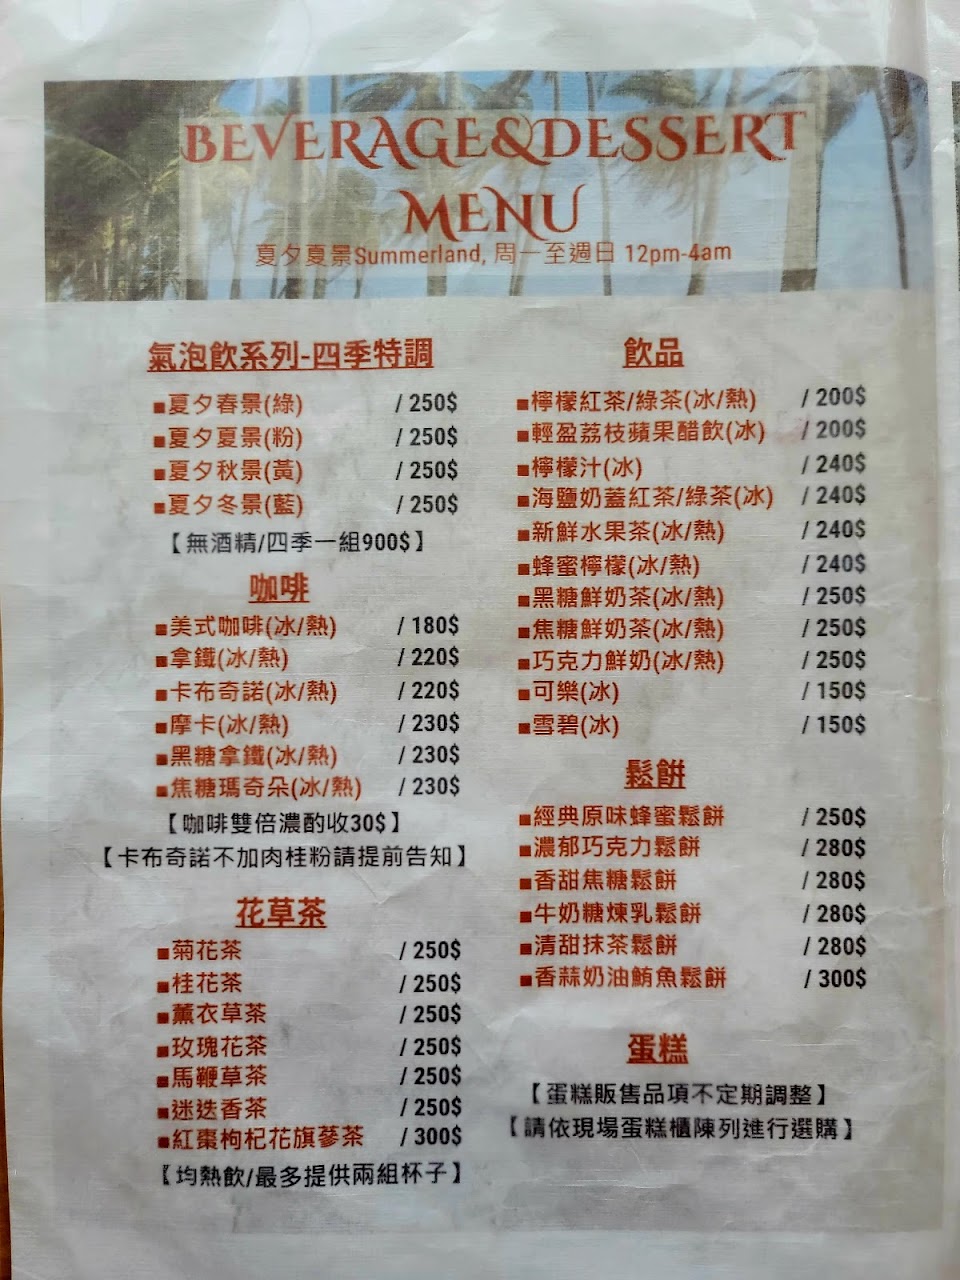 BEVERAGE&DESSERT
MENU
夏夕夏景Summerland, 周一至週日 12pm-4am
氣泡飲系列-四季特調
■夏夕春景(綠) / 250$
■夏夕夏景(粉) / 250$
■夏夕秋景(黃) / 250$
■夏夕冬景(藍) / 250$
【無酒精/四季一組900$】
咖啡
■美式咖啡(冰/熱) / 180$
■拿鐵(冰/熱) / 220$
■卡布奇諾(冰/熱) / 220$
■摩卡(冰/熱) / 230$
■黑糖拿鐵(冰/熱) / 230$
■焦糖瑪奇朵(冰/熱) / 230$
【咖啡雙倍濃酌收30$】
【卡布奇諾不加肉桂粉請提前告知】
花草茶
■菊花茶 / 250$
■桂花茶 / 250$
■薰衣草茶 / 250$
■玫瑰花茶 / 250$
■馬鞭草茶 / 250$
■迷迭香茶 / 250$
■紅棗枸杞花旗蔘茶 / 300$
【均熱飲/最多提供兩組杯子】
飲品
■檸檬紅茶/綠茶(冰/熱) / 200$
■輕盈荔枝蘋果醋飲(冰) / 200$
■檸檬汁(冰) / 240$
■海鹽奶蓋紅茶/綠茶(冰) / 240$
■新鮮水果茶(冰/熱) / 240$
■蜂蜜檸檬(冰/熱) / 240$
■黑糖鮮奶茶(冰/熱) / 250$
■焦糖鮮奶茶(冰/熱) / 250$
■巧克力鮮奶(冰/熱) / 250$
■可樂(冰) / 150$
■雪碧(冰) / 150$
鬆餅
■經典原味蜂蜜鬆餅 / 250$
■濃郁巧克力鬆餅 / 280$
■香甜焦糖鬆餅 / 280$
■牛奶糖煉乳鬆餅 / 280$
■清甜抹茶鬆餅 / 280$
■香蒜奶油鮪魚鬆餅 / 300$
蛋糕
【蛋糕販售品項不定期調整】
【請依現場蛋糕櫃陳列進行選購】